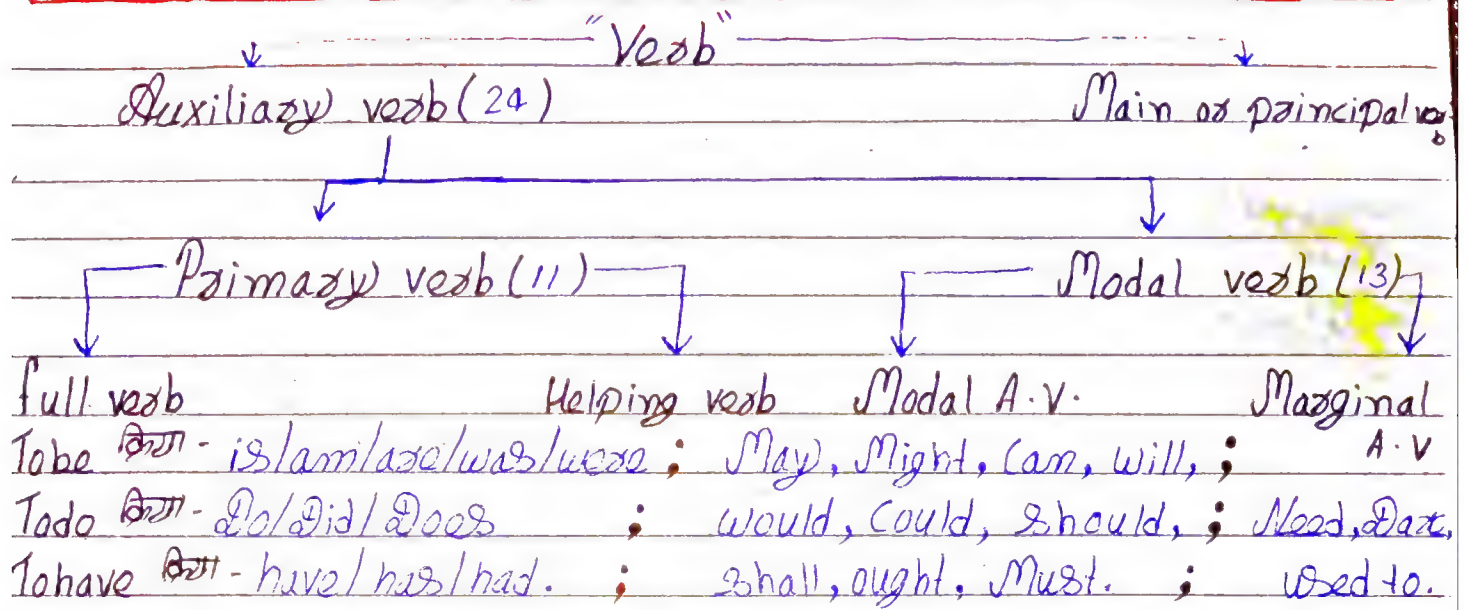 "Verb"
Auxiliary verb (24) Main or principal verb
Primary verb (11) Modal verb (13)
full verb Helping verb Modal A.V. Marginal A.V
Tobe क्रिया - is/am/are/was/were ; May, Might, Can, Will, ;
Todo क्रिया - Do/Did/Does ; would, Could, Should, ; Need, Dare,
Tohave क्रिया - have/has/had. ; shall, ought, Must. ; used to.